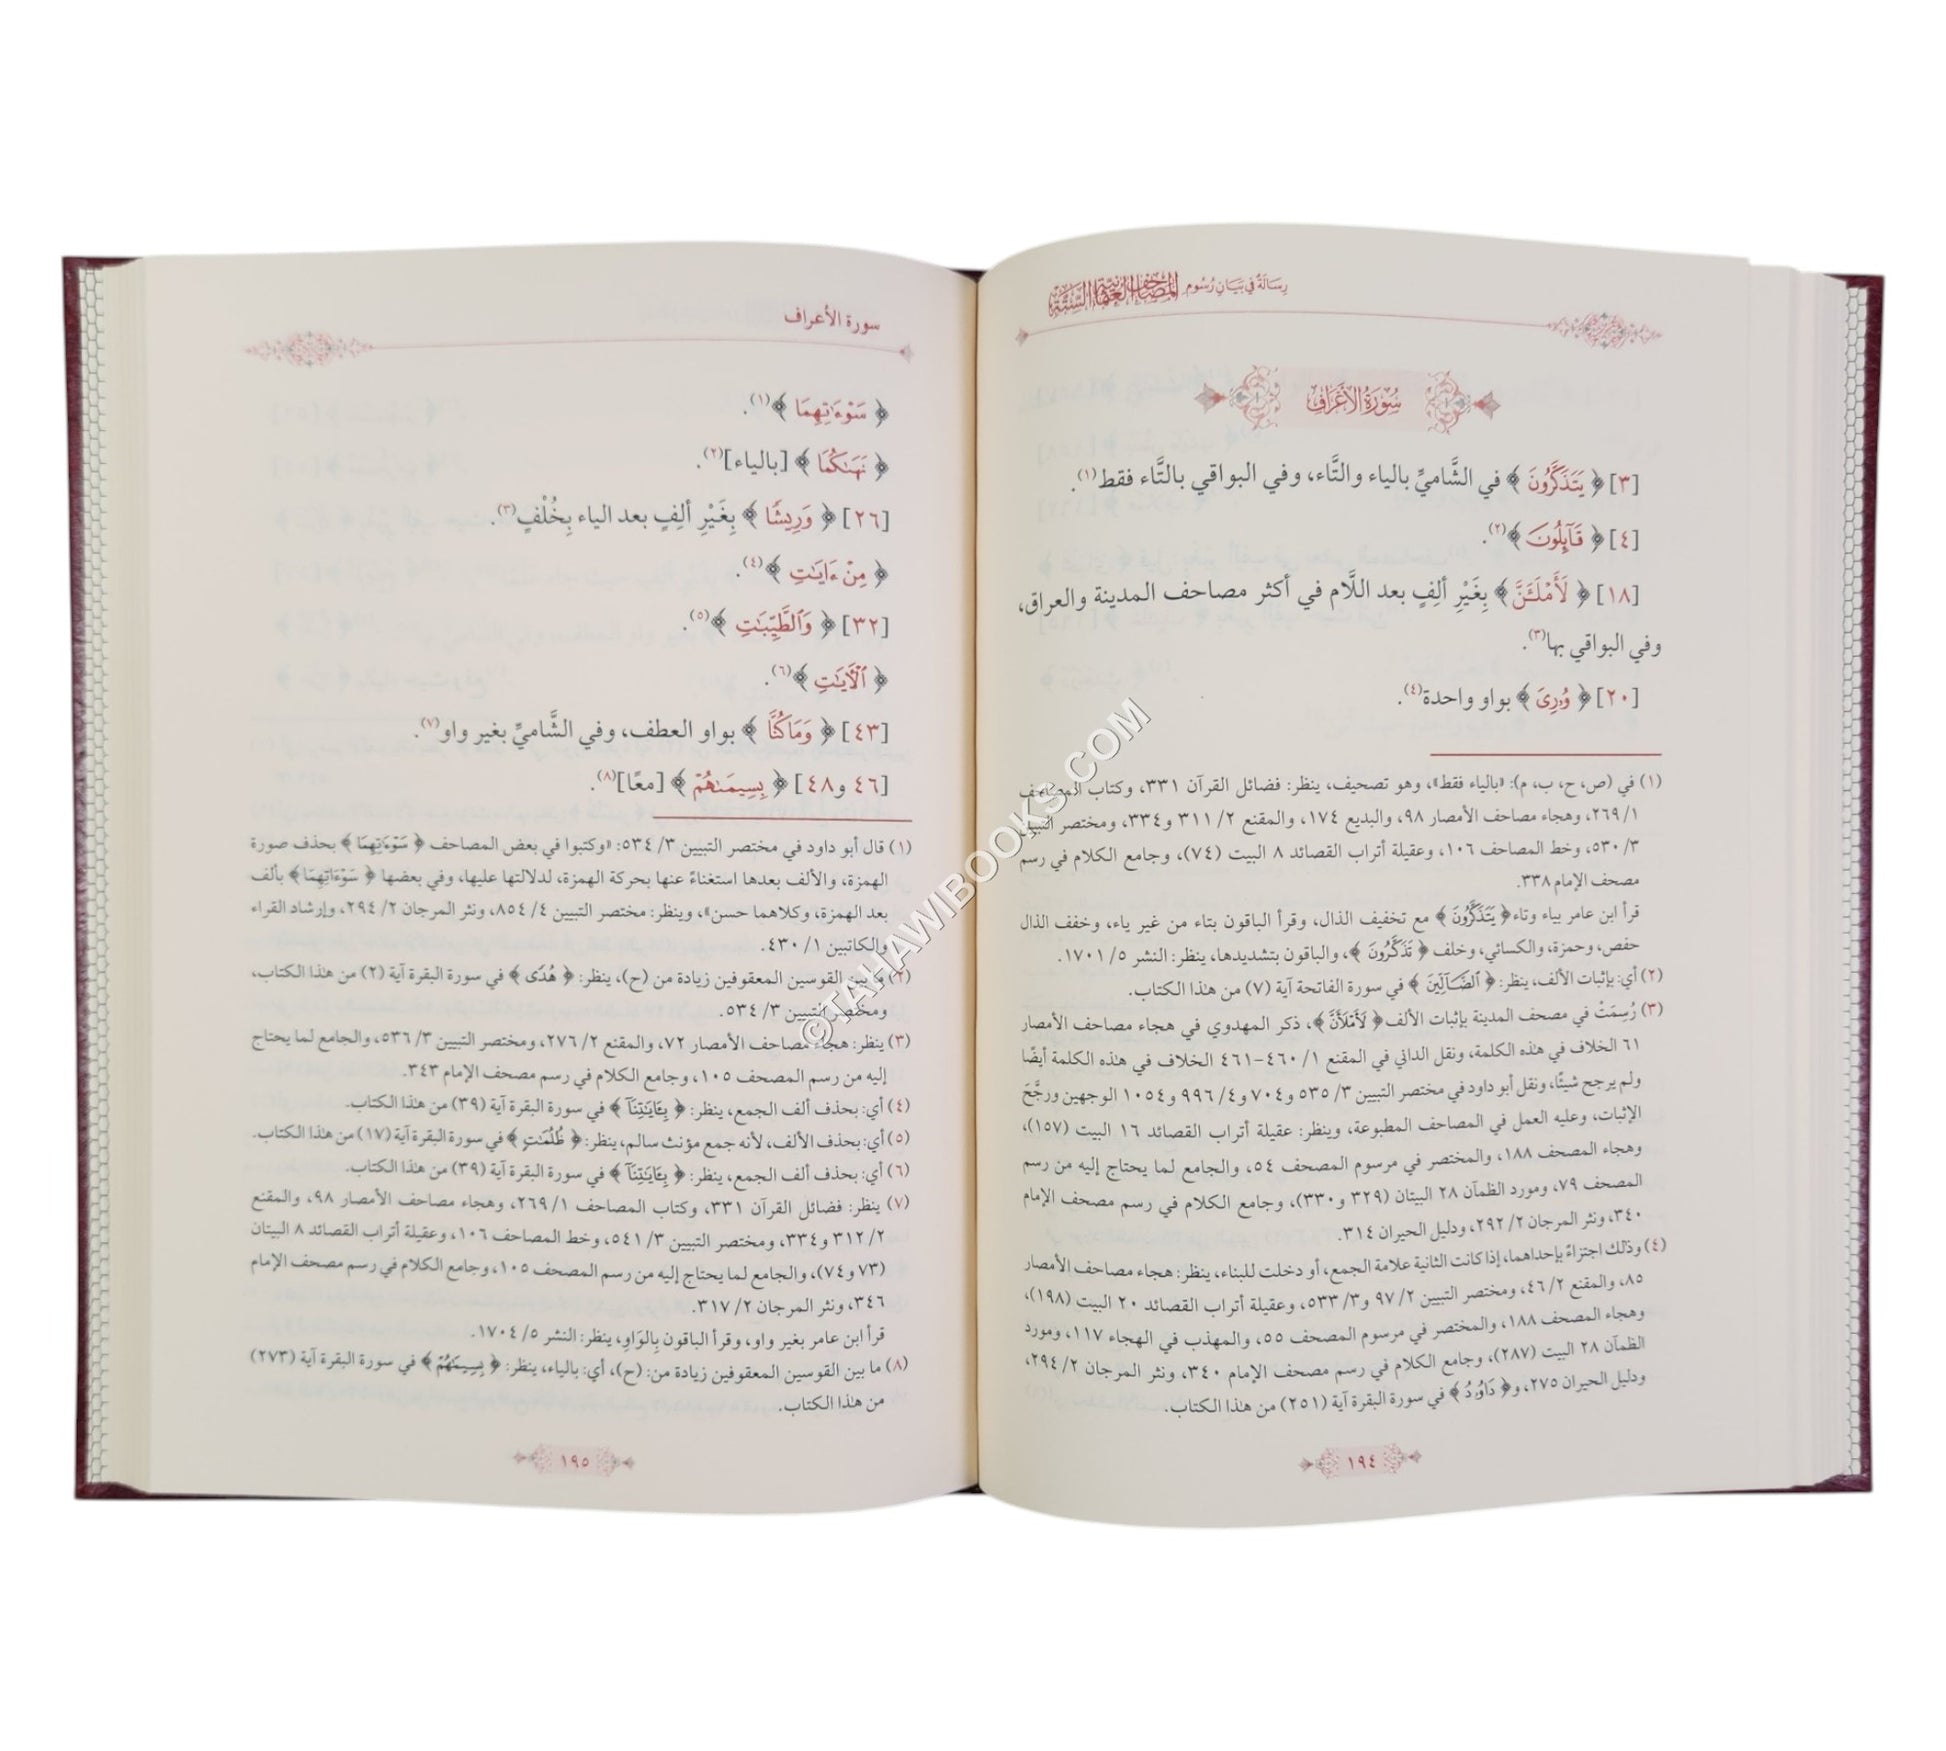 رسالة في بيان رسوم المصاحف العثمانية الستة
سورة الأعراف
[٣] ﴿ يَتَذَكَّرُونَ ﴾ في الشَّاميِّ بالياء والتَّاء، وفي البواقي بالتَّاء فقط(١).
[٤] ﴿ قَآئِلُونَ ﴾(٢).
[١٨] ﴿ لَأَمْلَـَٔنَّ ﴾ بِغَيْرِ ألِفٍ بعد اللَّام في أكثر مصاحف المدينة والعراق،
وفي البواقي بها(٣).
[٢٠] ﴿ وُۥرِىَ ﴾ بواو واحدة(٤).
(١) في (ص، ح، ب، م): «بالياء فقط»، وهو تصحيف، ينظر: فضائل القرآن ٣٣١، وكتاب المصاحف
١/ ٢٦٩، وهجاء مصاحف الأمصار ٩٨، والبديع ١٧٤، والمقنع ٢/ ٣١١ و٣٣٤، ومختصر التبيين
٣/ ٥٣٠، وخط المصاحف ١٠٦، وعقيلة أتراب القصائد ٨ البيت (٧٤)، وجامع الكلام في رسم
مصحف الإمام ٣٣٨.
قرأ ابن عامر بياء وتاء ﴿ يَتَذَكَّرُونَ ﴾ مع تخفيف الذال، وقرأ الباقون بتاء من غير ياء، وخفف الذال
حفص، وحمزة، والكسائي، وخلف ﴿ تَذَكَّرُونَ ﴾، والباقون بتشديدها، ينظر: النشر ٥/ ١٧٠١.
(٢) أي: بإثبات الألف، ينظر: ﴿ ٱلضَّآلِّينَ ﴾ في سورة الفاتحة آية (٧) من هذا الكتاب.
(٣) رُسِمَتْ في مصحف المدينة بإثبات الألف ﴿ لَأَمْلَأَنَّ ﴾، ذكر المهدوي في هجاء مصاحف الأمصار
٦١ الخلاف في هذه الكلمة، ونقل الداني في المقنع ١/ ٤٦٠-٤٦١ الخلاف في هذه الكلمة أيضًا
ولم يرجح شيئًا، ونقل أبو داود في مختصر التبيين ٣/ ٥٣٥ و٧٠٤ و٤/ ٩٩٦ و١٠٥٤ الوجهين ورجَّحَ
الإثبات، وعليه العمل في المصاحف المطبوعة، وينظر: عقيلة أتراب القصائد ١٦ البيت (١٥٧)،
وهجاء المصحف ١٨٨، والمختصر في مرسوم المصحف ٥٤، والجامع لما يحتاج إليه من رسم
المصحف ٧٩، ومورد الظمآن ٢٨ البيتان (٣٢٩ و٣٣٠)، وجامع الكلام في رسم مصحف الإمام
٣٤٠، ونثر المرجان ٢/ ٢٩٢، ودليل الحيران ٣١٤.
(٤) وذلك اجتزاءً بإحداهما، إذا كانت الثانية علامة الجمع، أو دخلت للبناء، ينظر: هجاء مصاحف الأمصار
٨٥، والمقنع ٢/ ٤٦، ومختصر التبيين ٢/ ٩٧ و٣/ ٥٣٣، وعقيلة أتراب القصائد ٢٠ البيت (١٩٨)،
وهجاء المصحف ١٨٨، والمختصر في مرسوم المصحف ٥٥، والمهذب في الهجاء ١١٧، ومورد
الظمآن ٢٨ البيت (٢٨٧)، وجامع الكلام في رسم مصحف الإمام ٣٤٠، ونثر المرجان ٢/ ٢٩٤،
ودليل الحيران ٢٧٥، و﴿ دَاوُۥدُ ﴾ في سورة البقرة آية (٢٥١) من هذا الكتاب.
١٩٤
سورة الأعراف
﴿ سَوْءَٰتِهِمَا ﴾(١).
﴿ نَهَىٰكُمَا ﴾ [بالياء](٢).
[٢٦] ﴿ وَرِيشًا ﴾ بِغَيْرِ ألِفٍ بعد الياء بِخُلْفٍ(٣).
﴿ مِنْ ءَايَٰتِ ﴾(٤).
[٣٢] ﴿ وَٱلطَّيِّبَٰتِ ﴾(٥).
﴿ ٱلْأَيَٰتِ ﴾(٦).
[٤٣] ﴿ وَمَا كُنَّا ﴾ بواو العطف، وفي الشَّاميِّ بغير واو(٧).
[٤٦ و٤٨] ﴿ بِسِيمَىٰهُمْ ﴾ [معًا](٨).
(١) قال أبو داود في مختصر التبيين ٣/ ٥٣٤: «وكتبوا في بعض المصاحف ﴿ سَوْءَٰتِهِمَا ﴾ بحذف صورة
الهمزة، والألف بعدها استغناءً عنها بحركة الهمزة، لدلالتها عليها، وفي بعضها ﴿ سَوْءَاتِهِمَا ﴾ بألف
بعد الهمزة، وكلاهما حسن»، وينظر: مختصر التبيين ٤/ ٨٥٤، ونثر المرجان ٢/ ٢٩٤، وإرشاد القراء
والكاتبين ١/ ٤٣٠.
(٢) ما بين القوسين المعقوفين زيادة من (ح)، ينظر: ﴿ هُدًى ﴾ في سورة البقرة آية (٢) من هذا الكتاب،
ومختصر التبيين ٣/ ٥٣٤.
(٣) ينظر: هجاء مصاحف الأمصار ٧٢، والمقنع ٢/ ٢٧٦، ومختصر التبيين ٣/ ٥٣٦، والجامع لما يحتاج
إليه من رسم المصحف ١٠٥، وجامع الكلام في رسم مصحف الإمام ٣٤٣.
(٤) أي: بحذف ألف الجمع، ينظر: ﴿ بِـَٔايَٰتِنَآ ﴾ في سورة البقرة آية (٣٩) من هذا الكتاب.
(٥) أي: بحذف الألف، لأنه جمع مؤنث سالم، ينظر: ﴿ ظُلُمَٰتٍ ﴾ في سورة البقرة آية (١٧) من هذا الكتاب.
(٦) أي: بحذف ألف الجمع، ينظر: ﴿ بِـَٔايَٰتِنَآ ﴾ في سورة البقرة آية (٣٩) من هذا الكتاب.
(٧) ينظر: فضائل القرآن ٣٣١، وكتاب المصاحف ١/ ٢٦٩، وهجاء مصاحف الأمصار ٩٨، والمقنع
٢/ ٣١٢ و٣٣٤، ومختصر التبيين ٣/ ٥٤١، وخط المصاحف ١٠٦، وعقيلة أتراب القصائد ٨ البيتان
(٧٣ و٧٤)، والجامع لما يحتاج إليه من رسم المصحف ١٠٥، وجامع الكلام في رسم مصحف الإمام
٣٤٦، ونثر المرجان ٢/ ٣١٧.
قرأ ابن عامر بغير واو، وقرأ الباقون بِالوَاوِ، ينظر: النشر ٥/ ١٧٠٤.
(٨) ما بين القوسين المعقوفين زيادة من: (ح)، أي: بالياء، ينظر: ﴿ بِسِيمَٰهُمْ ﴾ في سورة البقرة آية (٢٧٣)
من هذا الكتاب.
١٩٥
©TAHAWIBOOKS.COM